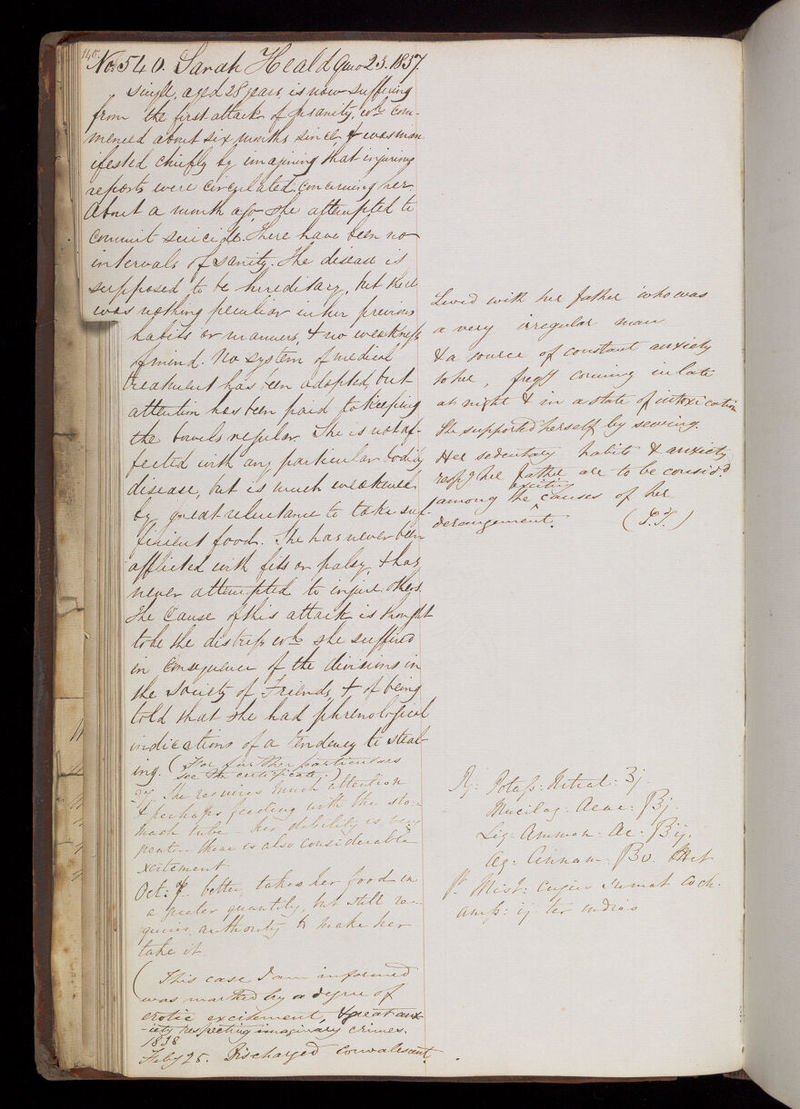 140
No. 540. Sarah Heald 9mo 23. 1837.
Single, aged 28 years is now suffering
from the first attack of insanity, wh. com-
menced about six months since, & was man-
ifested chiefly by imagining that injuring
reports were circulated concerning her.
About a month ago she attempted to
commit suicide. There have been no
intervals of sanity. The disease is
supposed to be hereditary, but there
was nothing peculiar in her previous
habits or manners, & no weakness
of mind. No system of medical
treatment has been adopted, but
attention has been paid to keeping
the bowels regular. She is not af-
fected with any particular bodily
disease, but is much weakened
by great reluctance to take suf-
ficient food. She has never been
afflicted with fits or palsy, & has
never attempted to injure others.
The cause of this attack is thought
to be the distress wh. she suffered
in consequence of the divisions in
the Society of Friends, & of being
told that she had phrenological
indications of a tendency to steal-
ing. (For further particulars
see the certificate)
27. She requires much attention
& perhaps feeding with the sto-
mach tube - her debility is very
great - there is also considerable
excitement
Oct: 7. better, takes her food in
a greater quantity, but still re-
quires authority to make her
take it
(This case I am informed
was marked by a degree of
erotic excitement, & great anx-
-iety respecting imaginary crimes.
1838
Feby 25. Discharged convalescent.
Lived with her father who was
a very irregular man
& a source of constant anxiety
to her, freqy coming in late
at night & in a state of intoxication
She supported herself by sewing.
Her sedentary habits & anxiety
respg her father are to be consid.d
among the exciting causes of her
derangement. (S.T.)
R: Potass: Nitrat: ʒj.
Mucilag: Acac: ℥j.
Liq: Ammon: Ac: ℥ij.
Aq: Cinnam: ℥v. M ft
Mist: cujus sumat coch:
amp: ij ter in dies